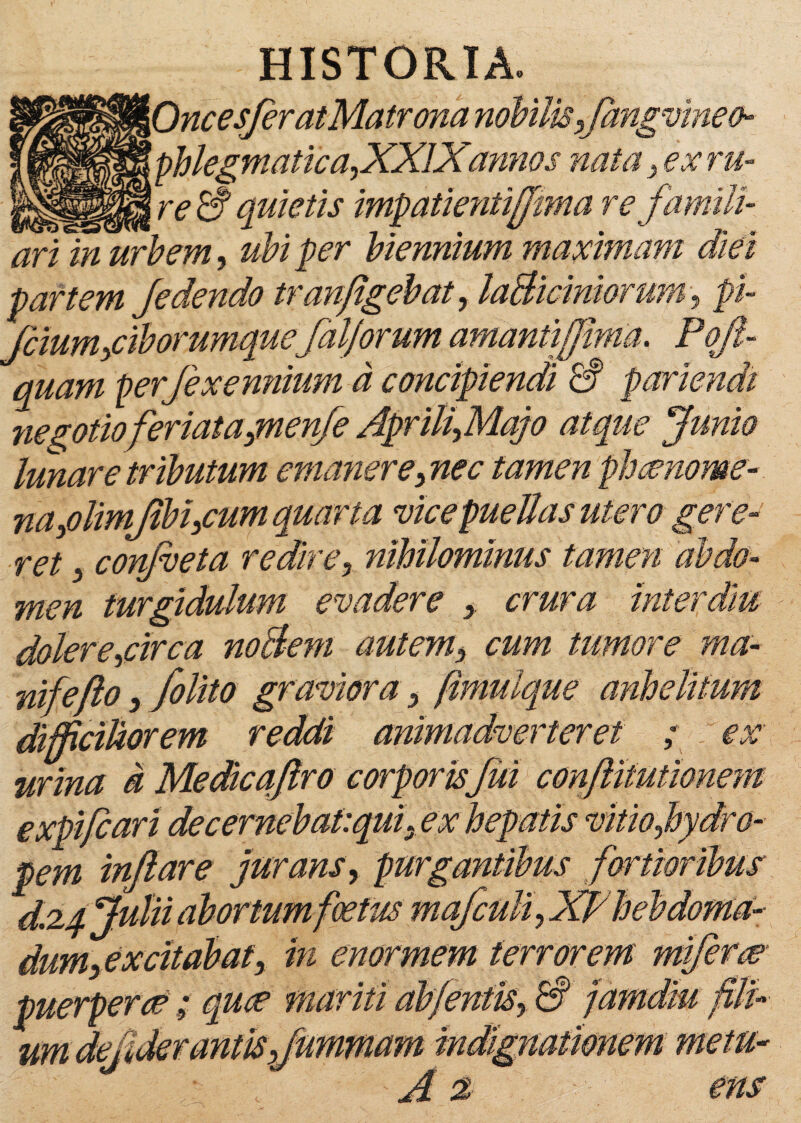 HISTORIA.
COncesſerat Matrona nobilis, ſangvineo-
phlegmatica, XXIX annos nata, ex ru-
re & quietis impatientiſſima re famili-
ari in urbem, ubi per biennium maximam diei
partem ſedendo tranſigebat, lacticiniorum, pi-
ſcium, ciborumque ſalſorum amantiſſima. Poſt-
quam per ſexennium à concipiendi & pariendi
negotio feriata, menſe Aprili, Majo atque Junio
lunare tributum emanere, nec tamen phænome-
na, olim ſibi, cum quarta vice puellas utero gere-
ret, conſveta redire, nihilominus tamen abdo-
men turgidulum evadere, crura interdiu
dolere, circa noctem autem, cum tumore ma-
nifeſto, ſolito graviora, ſimulque anhelitum
difficiliorem reddi animadverteret ; ex
urina à Medicaſtro corporis ſui conſtitutionem
expiſcari decernebat: qui, ex hepatis vitio, hydro-
pem inſtare jurans, purgantibus fortioribus
d. 24 Julii abortum fœtus maſculi, XV hebdoma-
dum, excitabat, in enormem terrorem miſeræ
puerperæ ; quæ mariti abſentis, & jamdiu fili-
um deſiderantis, ſummam indignationem metu-
A 2 ens